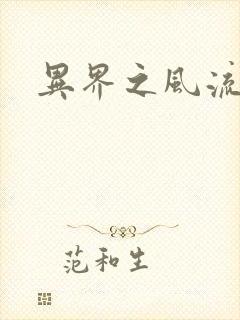 異界之風流
范和生